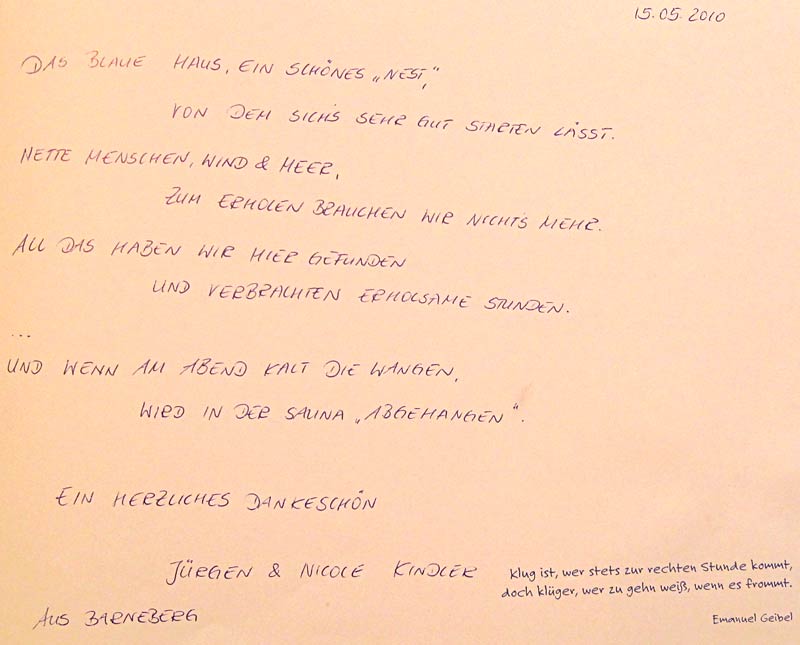 15.05.2010
DAS BLAUE HAUS, EIN SCHÖNES „NEST“,
VON DEM SICH'S SEHR GUT STARTEN LÄSST.
NETTE MENSCHEN, WIND & MEER,
ZUM ERHOLEN BRAUCHEN WIR NICHTS MEHR.
ALL DAS HABEN WIR HIER GEFUNDEN
UND VERBRACHTEN ERHOLSAME STUNDEN.
...
UND WENN AM ABEND KALT DIE WANGEN,
WIRD IN DER SAUNA „ABGEHANGEN“.
EIN HERZLICHES DANKESCHÖN
JÜRGEN & NICOLE KINDLER
AUS BARNEBERG
Klug ist, wer stets zur rechten Stunde kommt,
doch klüger, wer zu gehn weiß, wenn es frommt.
Emanuel Geibel